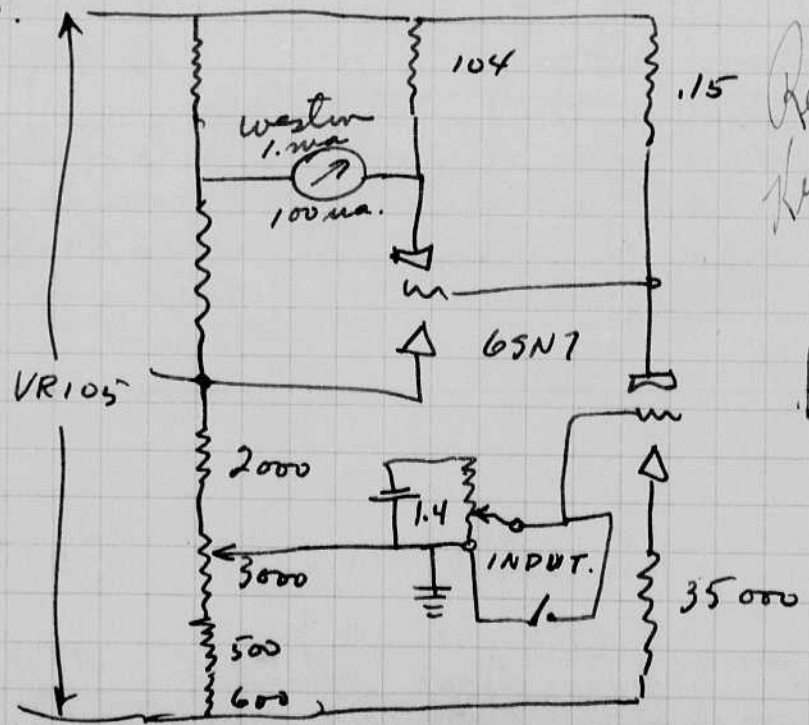 104
.15
Weston
1. ma
100 ua.
6SN7
VR105
2000
1.4
3000
INPUT.
35000
500
600